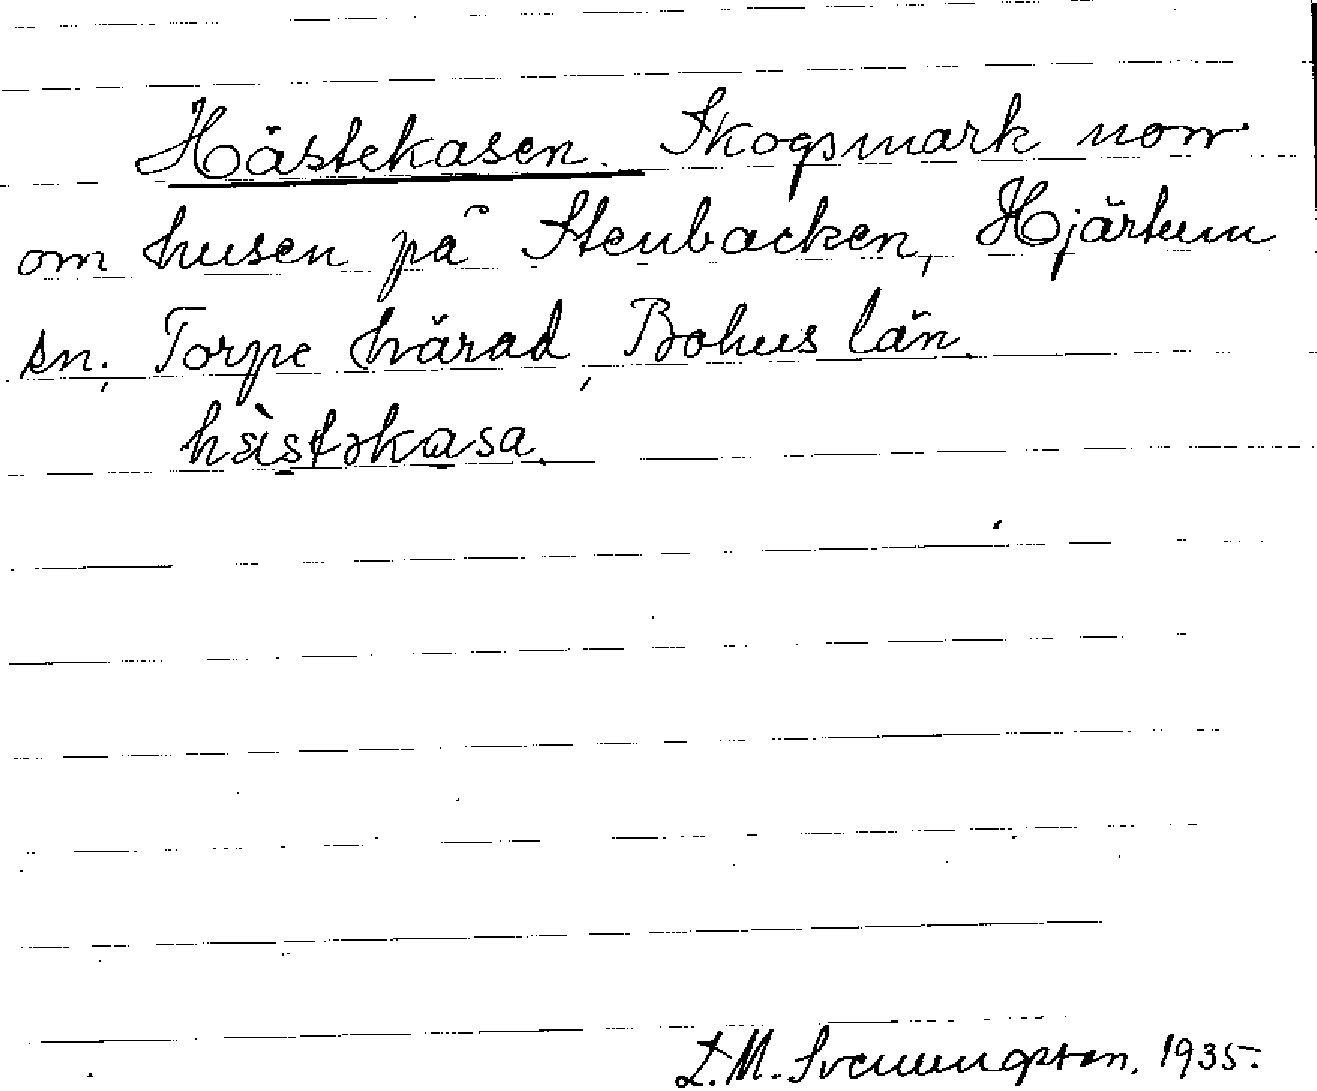 Hästekasen. Skogsmark norr
om husen på Stenbacken, Hjärtum
sn; Torpe härad, Bohus län.
hästəkasa.
L.M. Svenungsson. 1935.